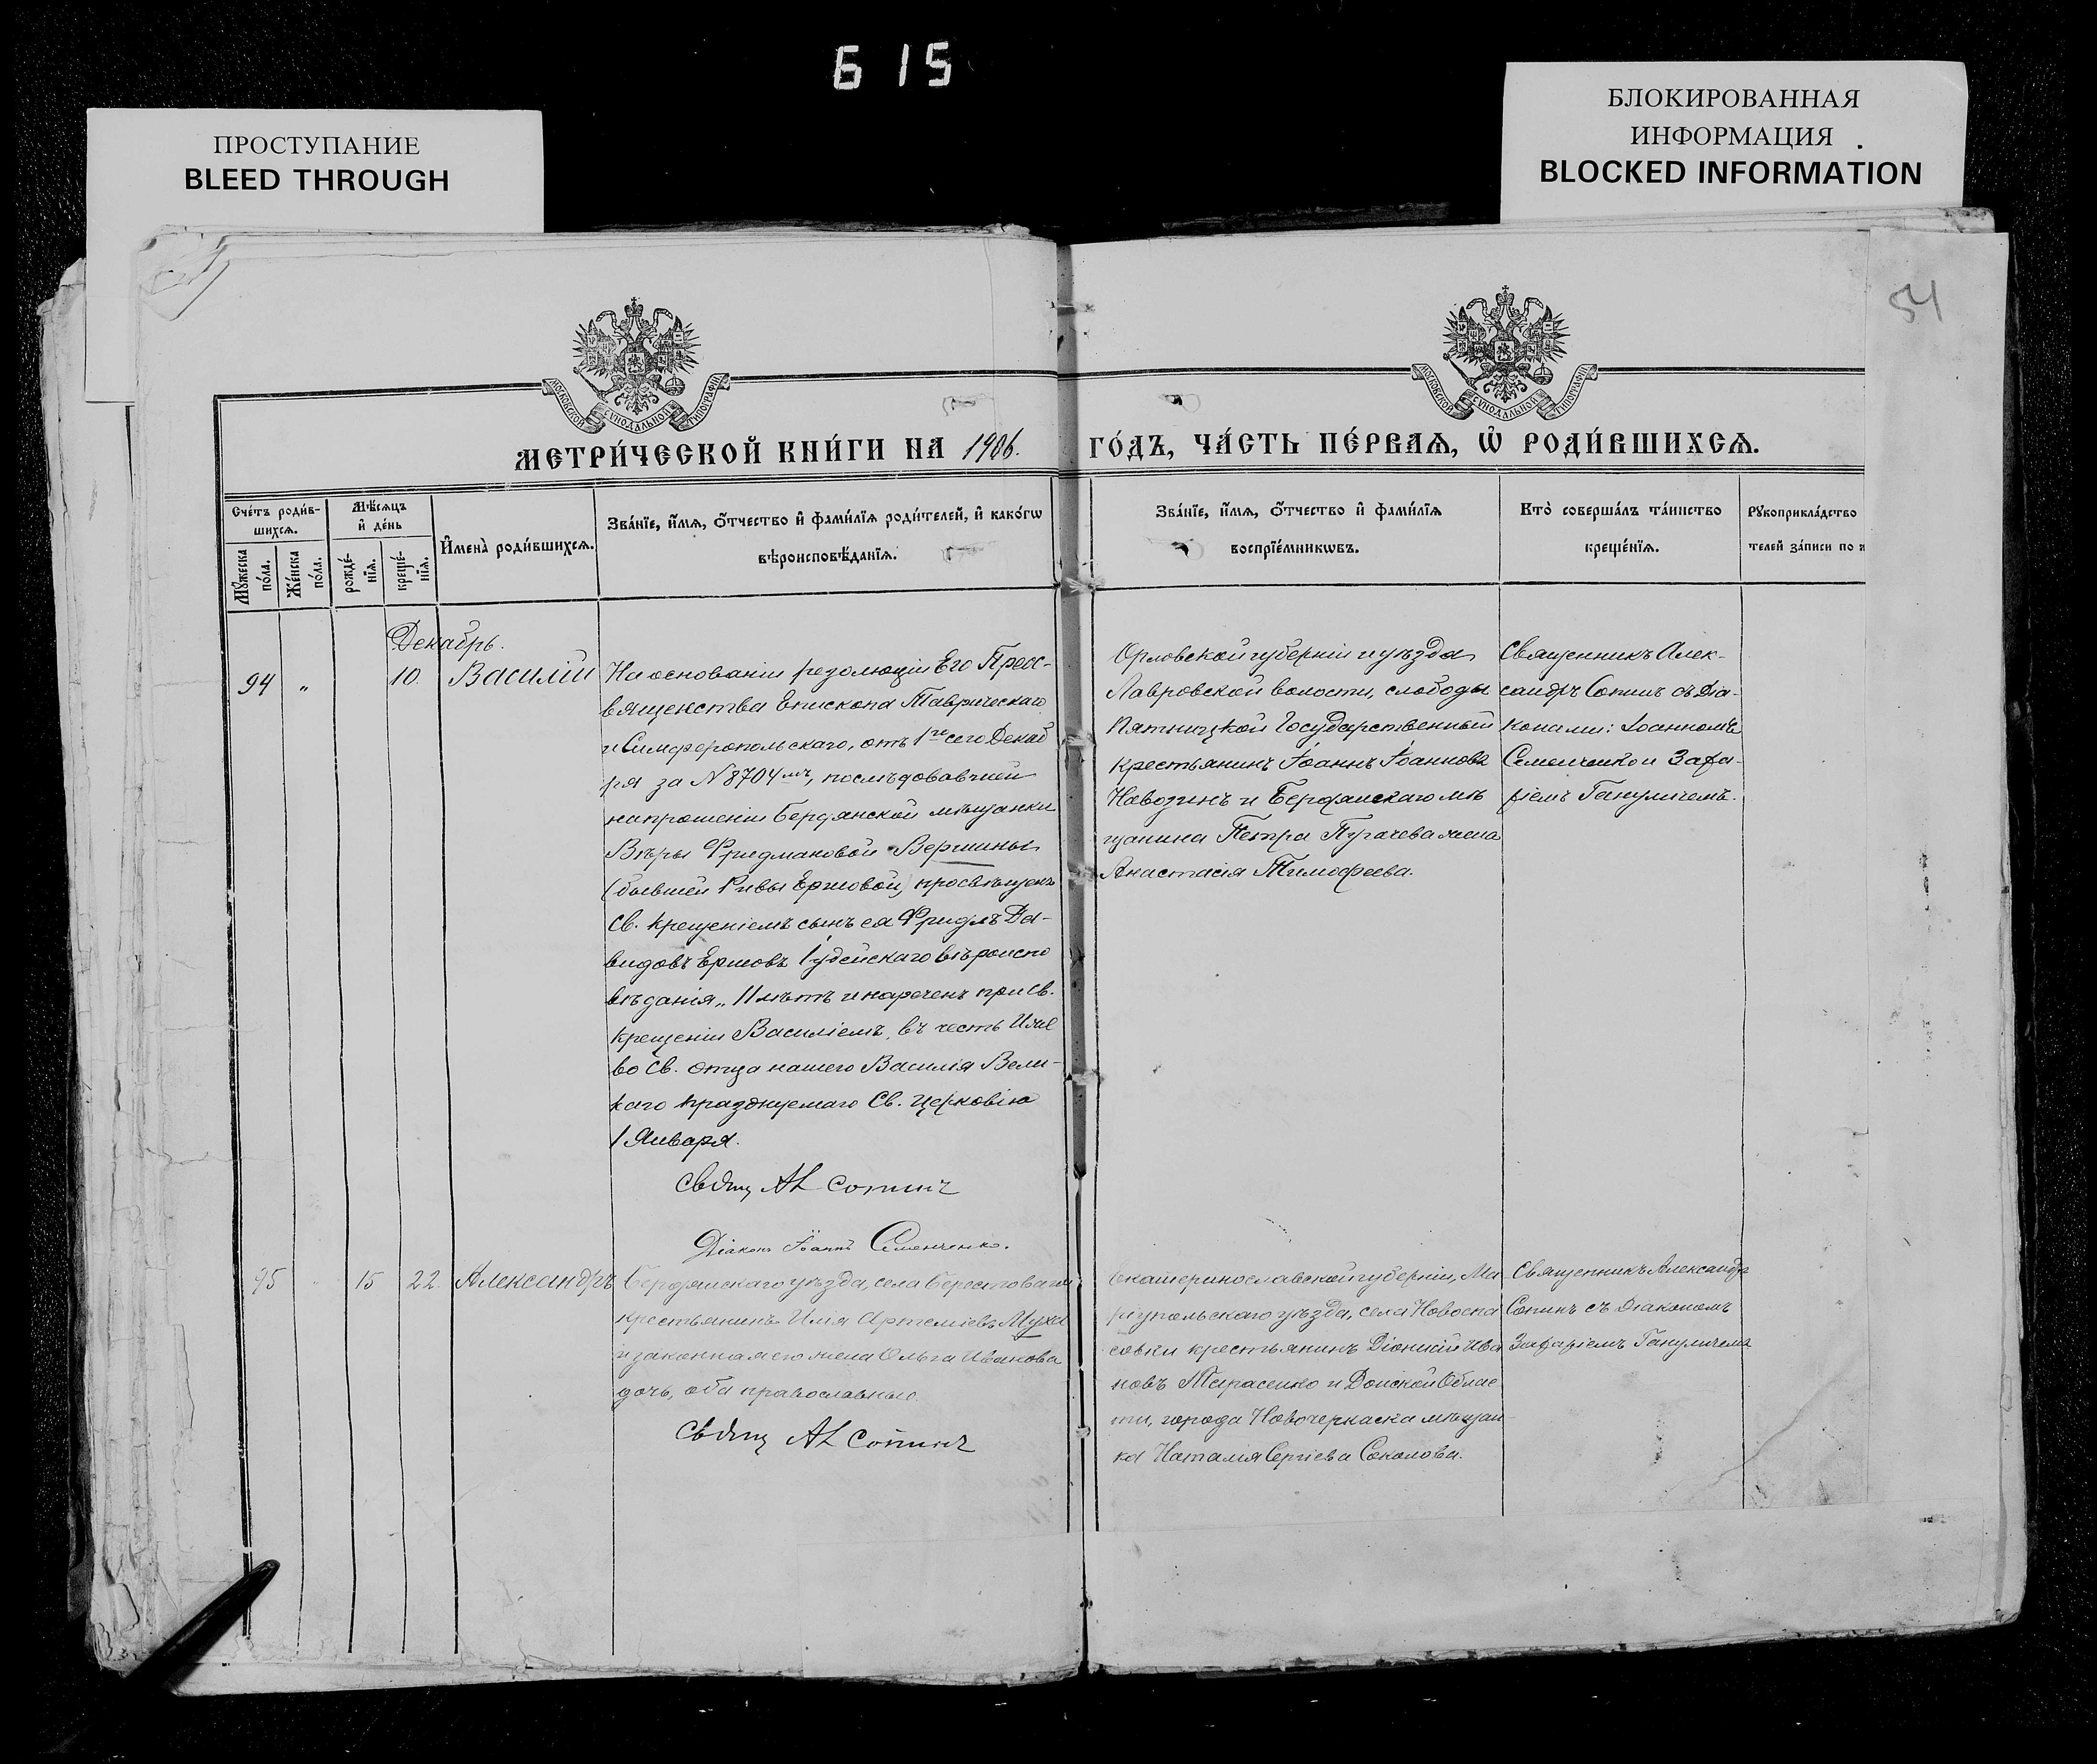 615
ПРОСТУПАНИЕ
BLEED THROUGH
БЛОКИРОВАННАЯ
ИНФОРМАЦИЯ
BLOCKED INFORMATION
54
МОСКОВСКОЙ СѴНОДАЛЬНОЙ ТИПОГРАФІИ
МОСКОВСКОЙ СѴНОДАЛЬНОЙ ТИПОГРАФІИ
МЕТРИ́ЧЕСКОЙ КНИ́ГИ НА 1906.
ГО́ДЪ, ЧА́СТЬ ПЕ́РВАѦ, Ѡ҆ РОДИ́ВШИХСѦ.
Сче́тъ роди́в-
шихсѧ.
Мꙋ́жеска
по́ла.
Же́нска
по́ла.
Мѣ́сѧцъ
и҆ де́нь
рожде́-
нїѧ.
креще́-
нїѧ.
И҆мена̀ роди́вшихсѧ.
Зва́нїе, и҆́мѧ, ѻ҆́тчество и҆ фами́лїѧ роди́телей, и҆ како́гѡ
вѣроисповѣ́данїѧ.
Зва́нїе, и҆́мѧ, ѻ҆́тчество и҆ фами́лїѧ
воспрїе́мникѡвъ.
Кто̀ соверша́лъ та́инство
креще́нїѧ.
Рꙋкоприкла́дство
телей за́писи по
Декабрь.
94 „ 10. Василій
На основаніи резолюціи Его Преос-
вященства Епископа Таврическаго
и Симферопольскаго, отъ 1го сего Декаб
ря за №8704мъ, послѣдовавшей
на прошеніи Бердянской мѣщанки
Вѣры Фридмановой Вершины
(бывшей Ривы Ершовой) просвѣщенъ
Св. крещеніемъ сынъ ея Фридлъ Да-
видовъ Ершовъ Іудейскаго вѣроиспо
вѣданія„ 11 лѣтъ и нареченъ при св.
крещеніи Василіемъ, въ честь Иже
во Св. отца нашего Василія Вели-
каго празднуемаго Св. Церковію
1 Января.
Свящ Ал Сопинъ
Діаконъ Іоаннъ Семенченко.
Орловской губерніи и уѣзда
Лавровской волости, слободы
Пятницкой Государственный
крестьянинъ Іоаннъ Іоанновъ
и Бердянскаго мѣ
щанина Петра Пугачева жена
Анастасія Тимофеева.
Священникъ Алек-
сандръ Сопинъ съ Діа-
конами: Іоанномъ
Семенченко и Заха-
ріемъ Гануличемъ.
95 „ 15 22. Александръ
Бердянскаго уѣзда, села Берестоваго
крестьянинъ Илія Артеміевъ Муха
и законная его жена Ольга Иванова
дочь, оба православные.
Свящ Ал Сопинъ
Екатеринославской губерніи, Ма-
ріупольскаго уѣзда, села Новоспа
совки крестьянинъ Діонисій Ива
новъ Тарасенко и Донской Облас
ти, города Новочеркаска мѣщан-
ка Наталія Сергіева Соколова.
Священникъ Александръ
Сопинъ съ Діакономъ
Захаріемъ Гануличемъ